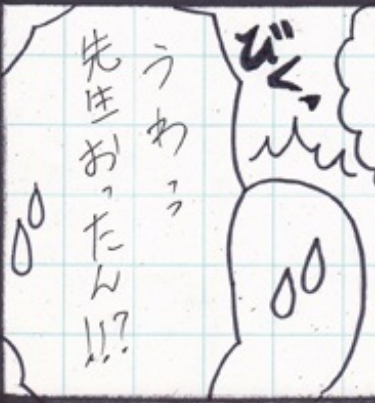 びくっ
うわっ
先生おったん!!?